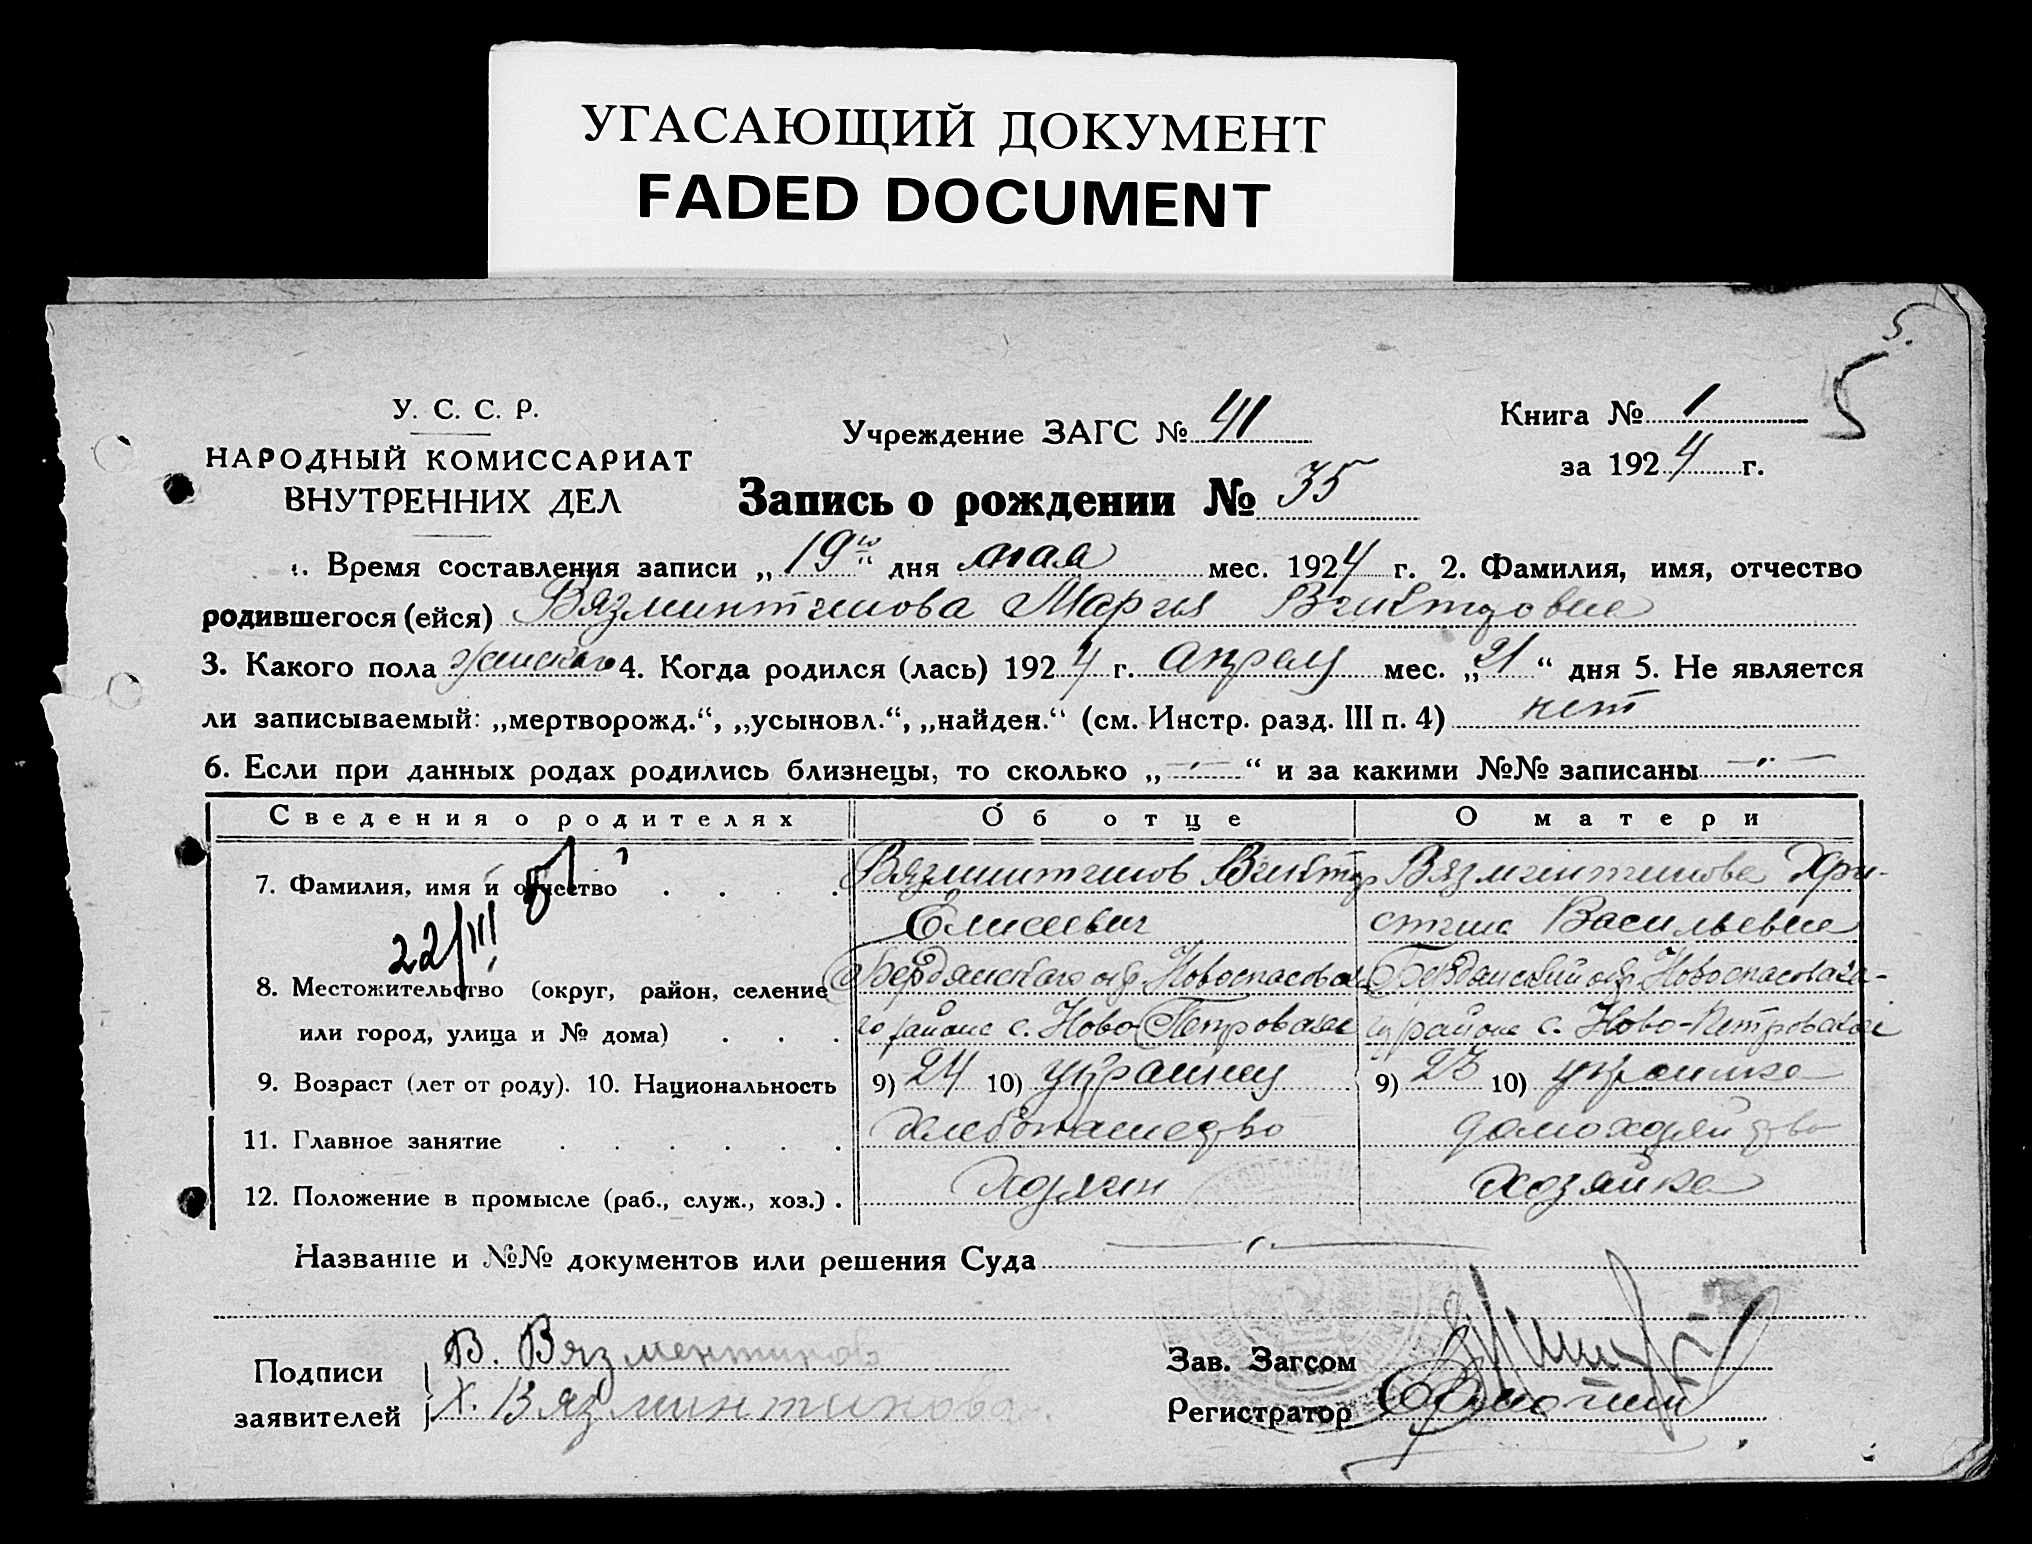 УГАСАЮЩИЙ ДОКУМЕНТ
FADED DOCUMENT
5.
5
У. С. С. Р.
НАРОДНЫЙ КОМИССАРИАТ
ВНУТРЕННИХ ДЕЛ
Учреждение ЗАГС № 41
Книга № 1
за 1924 г.
Запись о рождении № 35
1. Время составления записи „19го“ дня мая мес. 1924 г. 2. Фамилия, имя, отчество
родившегося (ейся) Вязминтинова Мария Викторовна
3. Какого пола женского 4. Когда родился (лась) 1924 г. апреля мес. „21“ дня 5. Не является
ли записываемый: „мертворожд.“, „усыновл.“, „найден.“ (см. Инстр. разд. III п. 4) нет
6. Если при данных родах родились близнецы, то сколько „—“ и за какими №№ записаны —
Сведения о родителях Об отце О матери
7. Фамилия, имя и отчество . . . . Вязминтинов Виктор Вязминтинова Хри-
Елисеевич стина Васильевна
22/III
8. Местожительство (округ, район, селение Бердянского окр. Новоспасовско Бердянский окр Новоспасовско-
или город, улица и № дома) . . . го района с. Ново-Петровка го района с. Ново-Петровка
9. Возраст (лет от роду). 10. Национальность 9) 24 10) украинец 9) 23 10) украинка
11. Главное занятие . . . . . . хлебопашество домохозяйство
12. Положение в промысле (раб., служ., хоз.) . хозяин хозяйка
Название и №№ документов или решения Суда —
Подписи заявителей
В. Вязментинов
Х. Вязминтинова
Зав. Загсом
Регистратор